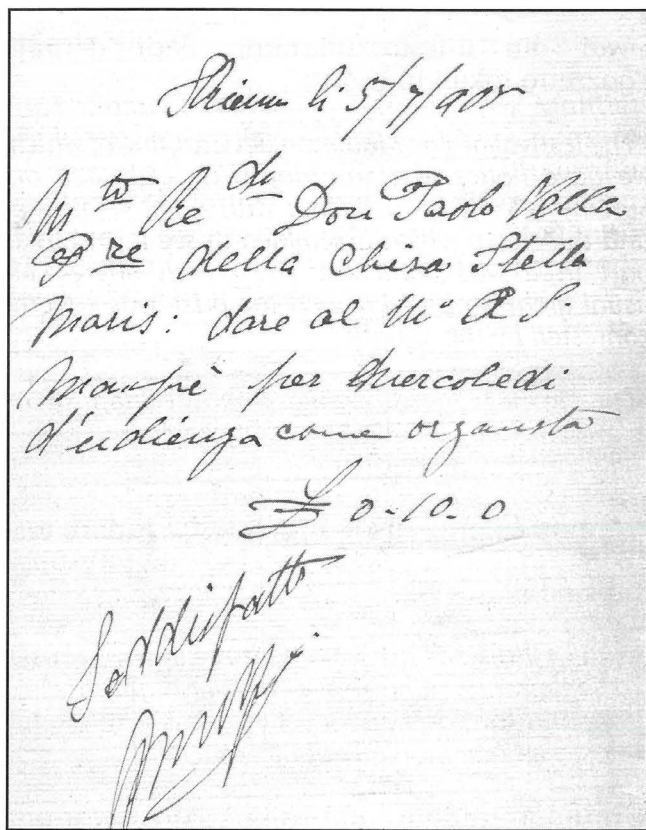 Sliema li 5/7/905
Mto Redo Don Paolo Vella
Pre della Chiesa Stella
Maris: dare al Mo A S.
Mampè per Mercoledi
d'udienza come organista
£ 0-10-0
Soddisfatto